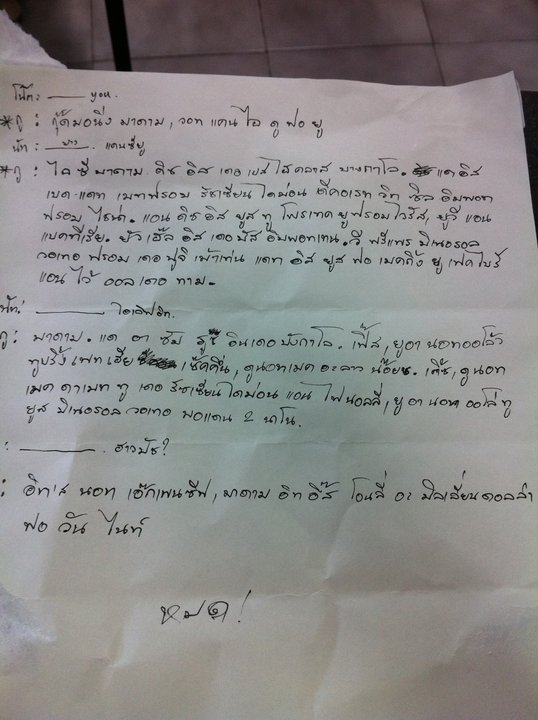 โน๊ต: ______ you.
*กู : กู๊ดมอนิ่ง มาดาม, วอท แคน ไอ ดู ฟอ ยู
นัท : ______ แคนซียู
*กู : ไอ ซี มาดาม. ดิช อิส เดอ เบส ไฮคลาส บางกาโล. แดอิส
เบด แดท เมทฟรอม รัซเซียน ไดม่อน ดีคอเรท วิท ซิล อิมพอท
ฟรอม ไชน่า. แอน ดิช อิส ยูส ทู โพรเทค ยูฟรอม ไวรัส, ยูวี แอน
แบคทีเรีย. ยัว เฮ็ล อิส เดอ มัส อิมพอทเทน. วี พรีแพร มิเนอรอล
วอเทอ ฟรอม เดอ ฟูจิ เม้าเท่น แดท อิส ยูส ฟอ เมคกิ้ง ยู เฟค ไบร์
แอน ไว้ ออล เดอ ทาม.
นัท: ______ ไดเอฟฮิท.
กู : มาดาม. แด อา ซัม รูซ อินเดอ บังกาโล. เฟิ๊ส, ยูอา นอทออโล้ว
ทูบริ้ง เพท เฮีย เซ็คคึ่น, ดูนอทเมค อะลาว น๊อยซ. เติ๊ซ, ดูนอท
เมค ดาเมท ทู เดอ รัซเซียนไดม่อน แอน ไฟนอลลี่, ยู อา นอท ออโล่ ทู
ยูส มิเนอรอล วอเทอ มอแดน 2 นาโน.
: ______. ฮาวมัช?
: อิท'ส นอท เอ๊กเพนซีฟ, มาดาม อิท อีส โอนลี่ อะ มิลเลี่ยนดอลล่า
ฟอ วัน ไนท์
หมด!